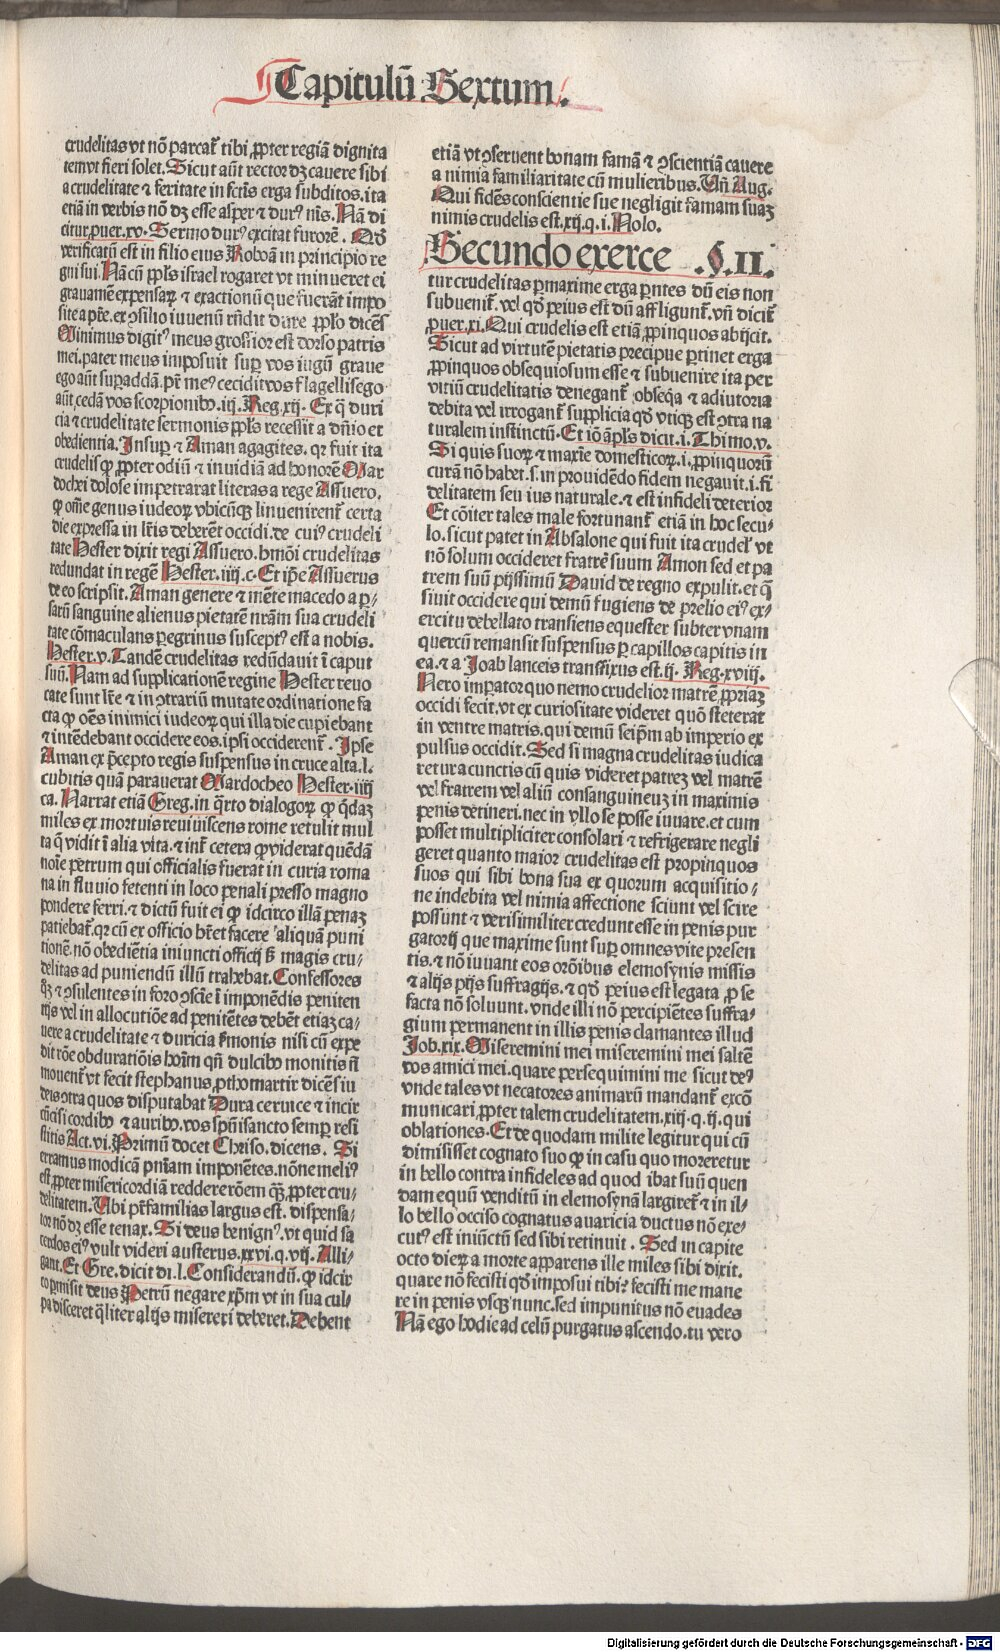 Capitulũ Sextum.
crudelitas vt nõ parcat᷑ tibi ꝓpter regiã dignita
tem vt fieri solet. Sicut aũt rector dꝫ cauere sibi
a crudelitate ⁊ feritate in fctis erga subditos. ita
etiã in verbis nõ dꝫ esse asper ⁊ durꝰ nis. Nã di
citur puer. xv. Sermo durꝰ excitat furorẽ. Qđ
verificatũ est in filio eius Roboã in principio re
gni sui. Nã cũ ppl̃s israel rogaret vt minueret ei
grauamẽ expensaꝝ ⁊ exactionũ que fuerãt impo
site a ptr̃e. ex ɔsilio iuuenũ rñdit dure ppl̃o dicẽs
Minimus digitꝰ meus grossior est dorso patris
mei. pater meus imposuit suꝑ vos iugũ graue
ego aũt suꝑaddã. pr̃ meꝰ cecidit vos flagellis ego
aũt cedã vos scorpionibꝰ. iij. Reg. xij. Ex q̃ duri
cia ⁊ crudelitate sermonis ppl̃s recessit a dño et
obedientia. Insuꝑ ⁊ Aman agagites. qꝛ fuit ita
crudelis ꝙ ꝓpter odiũ ⁊ inuidiã ad honorẽ Mar
dochei dolose impetrarat literas a rege Assuero.
ꝙ om̃e genus iudeoꝝ vbicũqꝫ inuenirent᷑ certa
die expressa in lr̃is deberẽt occidi. de cuiꝰ crudeli
tate Hester dixit regi Assuero. hmõi crudelitas
redundat in regẽ Hester. iiij. c. Et ip̃e Assuerus
de eo scripsit. Aman genere ⁊ mẽte macedo a ꝑ⸗
sarũ sanguine alienus pietatẽ nr̃am sua crudeli
tate cõmaculans ꝑegrinus susceptꝰ est a nobis.
Hester. v. Tandẽ crudelitas redũdauit ĩ caput
suũ. Nam ad supplicationẽ regine Hester reuo
cate sunt lr̃e ⁊ in ɔtrariũ mutate ordinatione fa
cta ꝙ oẽs inimici iudeoꝝ qui illa die cupiebant
⁊ intẽdebant occidere eos. ipsi occiderent᷑. Ipse
Aman ex p̃cepto regis suspensus in cruce alta. l.
cubitis quã parauerat Mardocheo Hester. iiij
ca. Narrat etiã Greg. in q̃rto dialogoꝝ ꝙ q̃daꝫ
miles ex mortuis reuiuiscens rome retulit mul
ta q̃ vidit ĩ alia vita. ⁊ int᷑ cetera ꝙ viderat quẽdã
noĩe petrum qui officialis fuerat in curia roma
na in fluuio fetenti in loco penali presso magno
pondere ferri. ⁊ dictũ fuit ei ꝙ idcirco illã penaꝫ
patiebat᷑. qꝛ cũ ex officio hr̃et facere aliquã puni
tionẽ. nõ obediẽtia iniuncti officij sꝫ magis cru⸗
delitas ad puniendũ illũ trahebat. Confessores
qꝫ ⁊ ɔsulentes in foro ɔscĩe ĩ imponẽdis peniten
tijs vel in allocutiõe ad penitẽtes debẽt etiaꝫ ca⸗
uere a crudelitate ⁊ duricia s̃monis nisi cũ expe
dit rõe obdurationis hoĩm qñ dulcibꝰ monitis ñ
mouent᷑ vt fecit stephanus ꝓthomartir dicẽs iu
deis ɔtra quos disputabat Dura ceruice ⁊ incir
cũcisi cordibꝰ ⁊ auribꝰ. vos spũi sancto semꝑ resi
stitis Act. vi. Primũ docet Chriso. dicens. Si
erramus modicã pñiam imponẽtes. nõne meliꝰ
est ꝓpter misericordiã reddere rõem qꝫ ꝓpter cru⸗
delitatem. Ubi pr̃familias largus est. dispensa⸗
tor nõ dꝫ esse tenax. Si deus benignꝰ. vt quid sa
cerdos eiꝰ vult videri austerus. xxvi. q. vij. Alli⸗
gant. Et Gre. dicit di. l. Considerandũ. ꝙ idcir
co ꝑmisit deus Petrũ negare xp̃m vt in sua cul⸗
pa disceret q̃liter alijs misereri deberet. Debent
etiã vt ɔseruent bonam famã ⁊ ɔscientiã cauere
a nimia familiaritate cũ mulieribus. Uñ Aug.
Qui fidẽs conscientie sue negligit famam suaꝫ
nimis crudelis est. xij. q. i. Nolo.
Secundo exerce .§.II.
tur crudelitas ꝑmaxime erga ꝑntes dũ eis non
subuenit᷑. vel qđ peius est dũ affligunt᷑. vñ dicit᷑
puer. xi. Qui crudelis est etiã ꝓpinquos abijcit.
Sicut ad virtutẽ pietatis precipue ꝑtinet erga
ꝓpinquos obsequiosum esse ⁊ subuenire ita per
vitiũ crudelitatis denegant᷑ obseq̃a ⁊ adiutoria
debita vel irrogant᷑ supplicia qđ vtiqꝫ est ɔtra na
turalem instinctũ. Et iõ apl̃s dicit. i. Thimo. v.
Si quis suoꝝ ⁊ maxĩe domesticoꝝ. i. ꝓpinquorũ
curã nõ habet. s. in prouidẽdo fidem negauit. i. fi
delitatem seu ius naturale. ⁊ est infideli deterior
Et cõiter tales male fortunant᷑ etiã in hoc secu⸗
lo. sicut patet in Absalone qui fuit ita crudel᷑ vt
nõ solum occideret fratrẽ suum Amon sed et pa
trem suũ pijssimũ Dauid de regno expulit. et q̃
siuit occidere qui demũ fugiens de prelio eiꝰ ex⸗
ercitu debellato transiens equester subter vnam
quercũ remansit suspensus ꝑ capillos capitis in
ea. ⁊ a Joab lanceis transfixus est. ij. Reg. xviij.
Nero imꝑator quo nemo crudelior matrẽ ꝓpriaꝫ
occidi fecit. vt ex curiositate videret quõ steterat
in ventre matris. qui demũ seip̃m ab imperio ex
pulsus occidit. Sed si magna crudelitas iudica
retur a cunctis cũ quis videret patreꝫ vel matrẽ
vel fratrem vel aliũ consanguineuꝫ in maximis
penis detineri. nec in vllo se posse iuuare. et cum
posset multipliciter consolari ⁊ refrigerare negli
geret quanto maior crudelitas est propinquos
suos qui sibi bona sua ex quorum acquisitio⸗
ne indebita vel nimia affectione sciunt vel scire
possunt ⁊ verisimiliter credunt esse in penis pur
gatorij que maxime sunt suꝑ omnes vite presen
tis. ⁊ nõ iuuant eos orõibus elemosynis missis
⁊ alijs pijs suffragijs. ⁊ qđ peius est legata ꝓ se
facta nõ soluunt. vnde illi nõ percipiẽtes suffra⸗
gium permanent in illis penis clamantes illud
Job. xix. Miseremini mei miseremini mei saltẽ
vos amici mei. quare persequimini me sicut deꝰ
vnde tales vt necatores animarũ mandant᷑ excõ
municari ꝓpter talem crudelitatem. xiij. q. ij. qui
oblationes. Et de quodam milite legitur qui cũ
dimisisset cognato suo ꝙ in casu quo moreretur
in bello contra infideles ad quod ibat suũ quen
dam equũ venditũ in elemosynã largiret᷑ ⁊ in il⸗
lo bello occiso cognatus auaricia ductus nõ exe⸗
cutꝰ est iniũctũ sed sibi retinuit. Sed in capite
octo dieꝝ a morte apparens ille miles sibi dixit.
quare nõ fecisti qđ imposui tibi? fecisti me mane
re in penis vsqꝫ nunc. sed impunitus nõ euades
Nã ego hodie ad celũ purgatus ascendo. tu vero
Digitalisierung gefördert durch die Deutsche Forschungsgemeinschaft - DFG